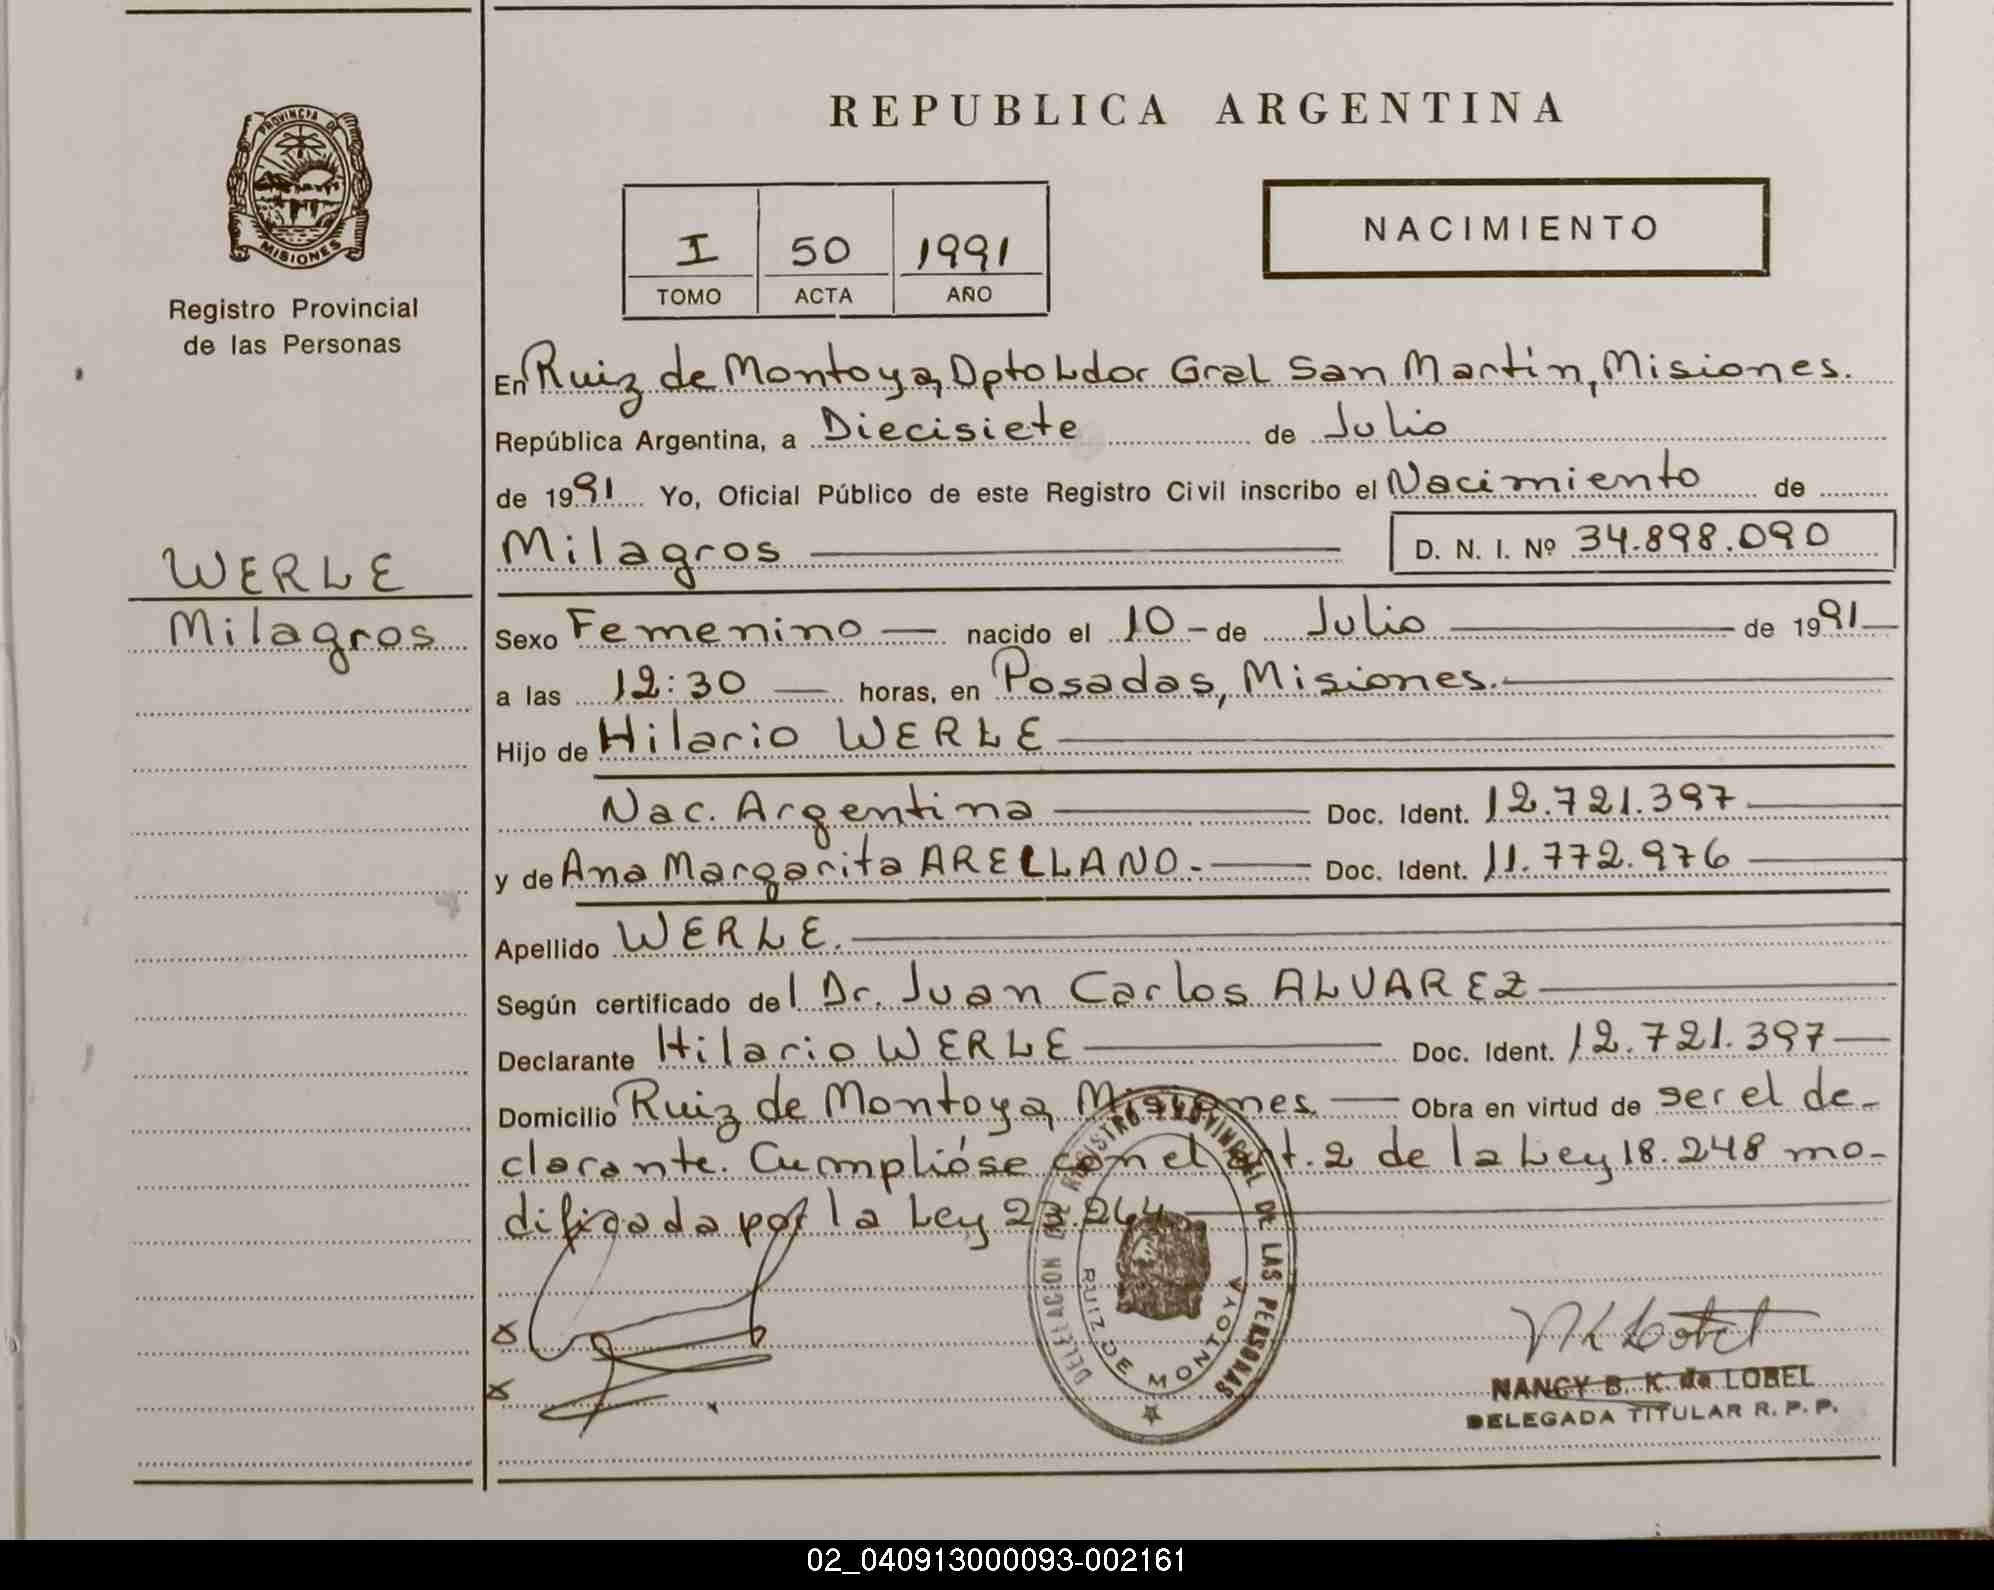 REPUBLICA ARGENTINA
PROVINCIA DE
MISIONES
Registro Provincial
de las Personas
I 50 1991
TOMO ACTA AÑO
NACIMIENTO
En Ruiz de Montoya, Dpto Ldor Gral San Martín, Misiones.
República Argentina, a Diecisiete de Julio
de 1991 Yo, Oficial Público de este Registro Civil inscribo el Nacimiento de
WERLE
Milagros
Milagros D. N. I. Nº 34.898.090
Sexo Femenino — nacido el 10 - de Julio — de 1991 —
a las 12:30 — horas, en Posadas, Misiones. —
Hijo de Hilario WERLE —
Nac. Argentina — Doc. Ident. 12.721.397 —
y de Ana Margarita ARELLANO. — Doc. Ident. 11.772.976 —
Apellido WERLE. —
Según certificado del Dr. Juan Carlos ALVAREZ —
Declarante Hilario WERLE — Doc. Ident. 12.721.397 —
Domicilio Ruiz de Montoya, Misiones — Obra en virtud de ser el de-
clarante. Cumplióse con el art. 2 de la Ley 18.248 mo-
dificada por la Ley 23.264 —
DELEGACION DEL REGISTRO PROVINCIAL DE LAS PERSONAS
RUIZ DE MONTOYA
NANCY B. K. de LOBEL
DELEGADA TITULAR R. P. P.
02_040913000093-002161